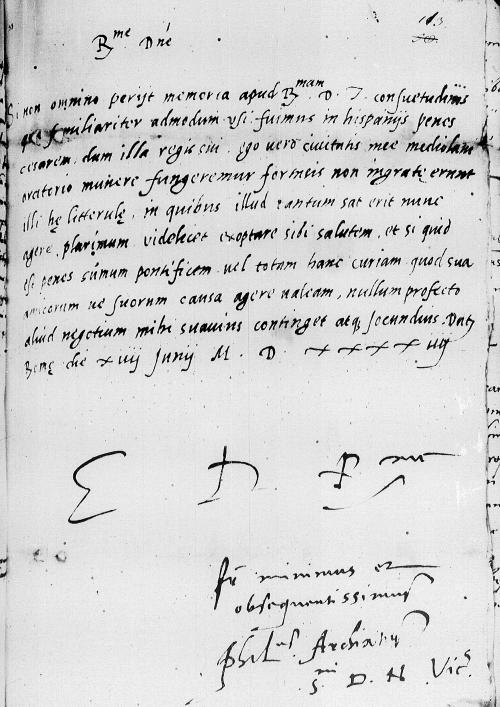 113
R.me Dn̄e
Si non omnino perijt memoria apud R.mam D. T. consuetudinis
qua familiariter admodum usi fuimus in hispanijs penes
cesarem, dum illa regis sui, ego vero civitatis mee mediolani
oratorio munere fungeremur fortassis non ingratę erunt
illi hę litterulę, in quibus illud tantum sat erit nunc
agere, plurimum videlicet exoptare sibi salutem, et si quid
est penes sūmum pontificem vel totam hanc curiam quod sua
amicorum ve suorum causa agere valeam, nullum profecto
aliud negotium mihi suavius continget atq; Jocundius. Dat;
Romę die xviij Junij M. D. xxxxiiij
E D R.me
fr minimus et
obsequentissimus
Phil.us Archintus
S.mi D. N. Vic.s